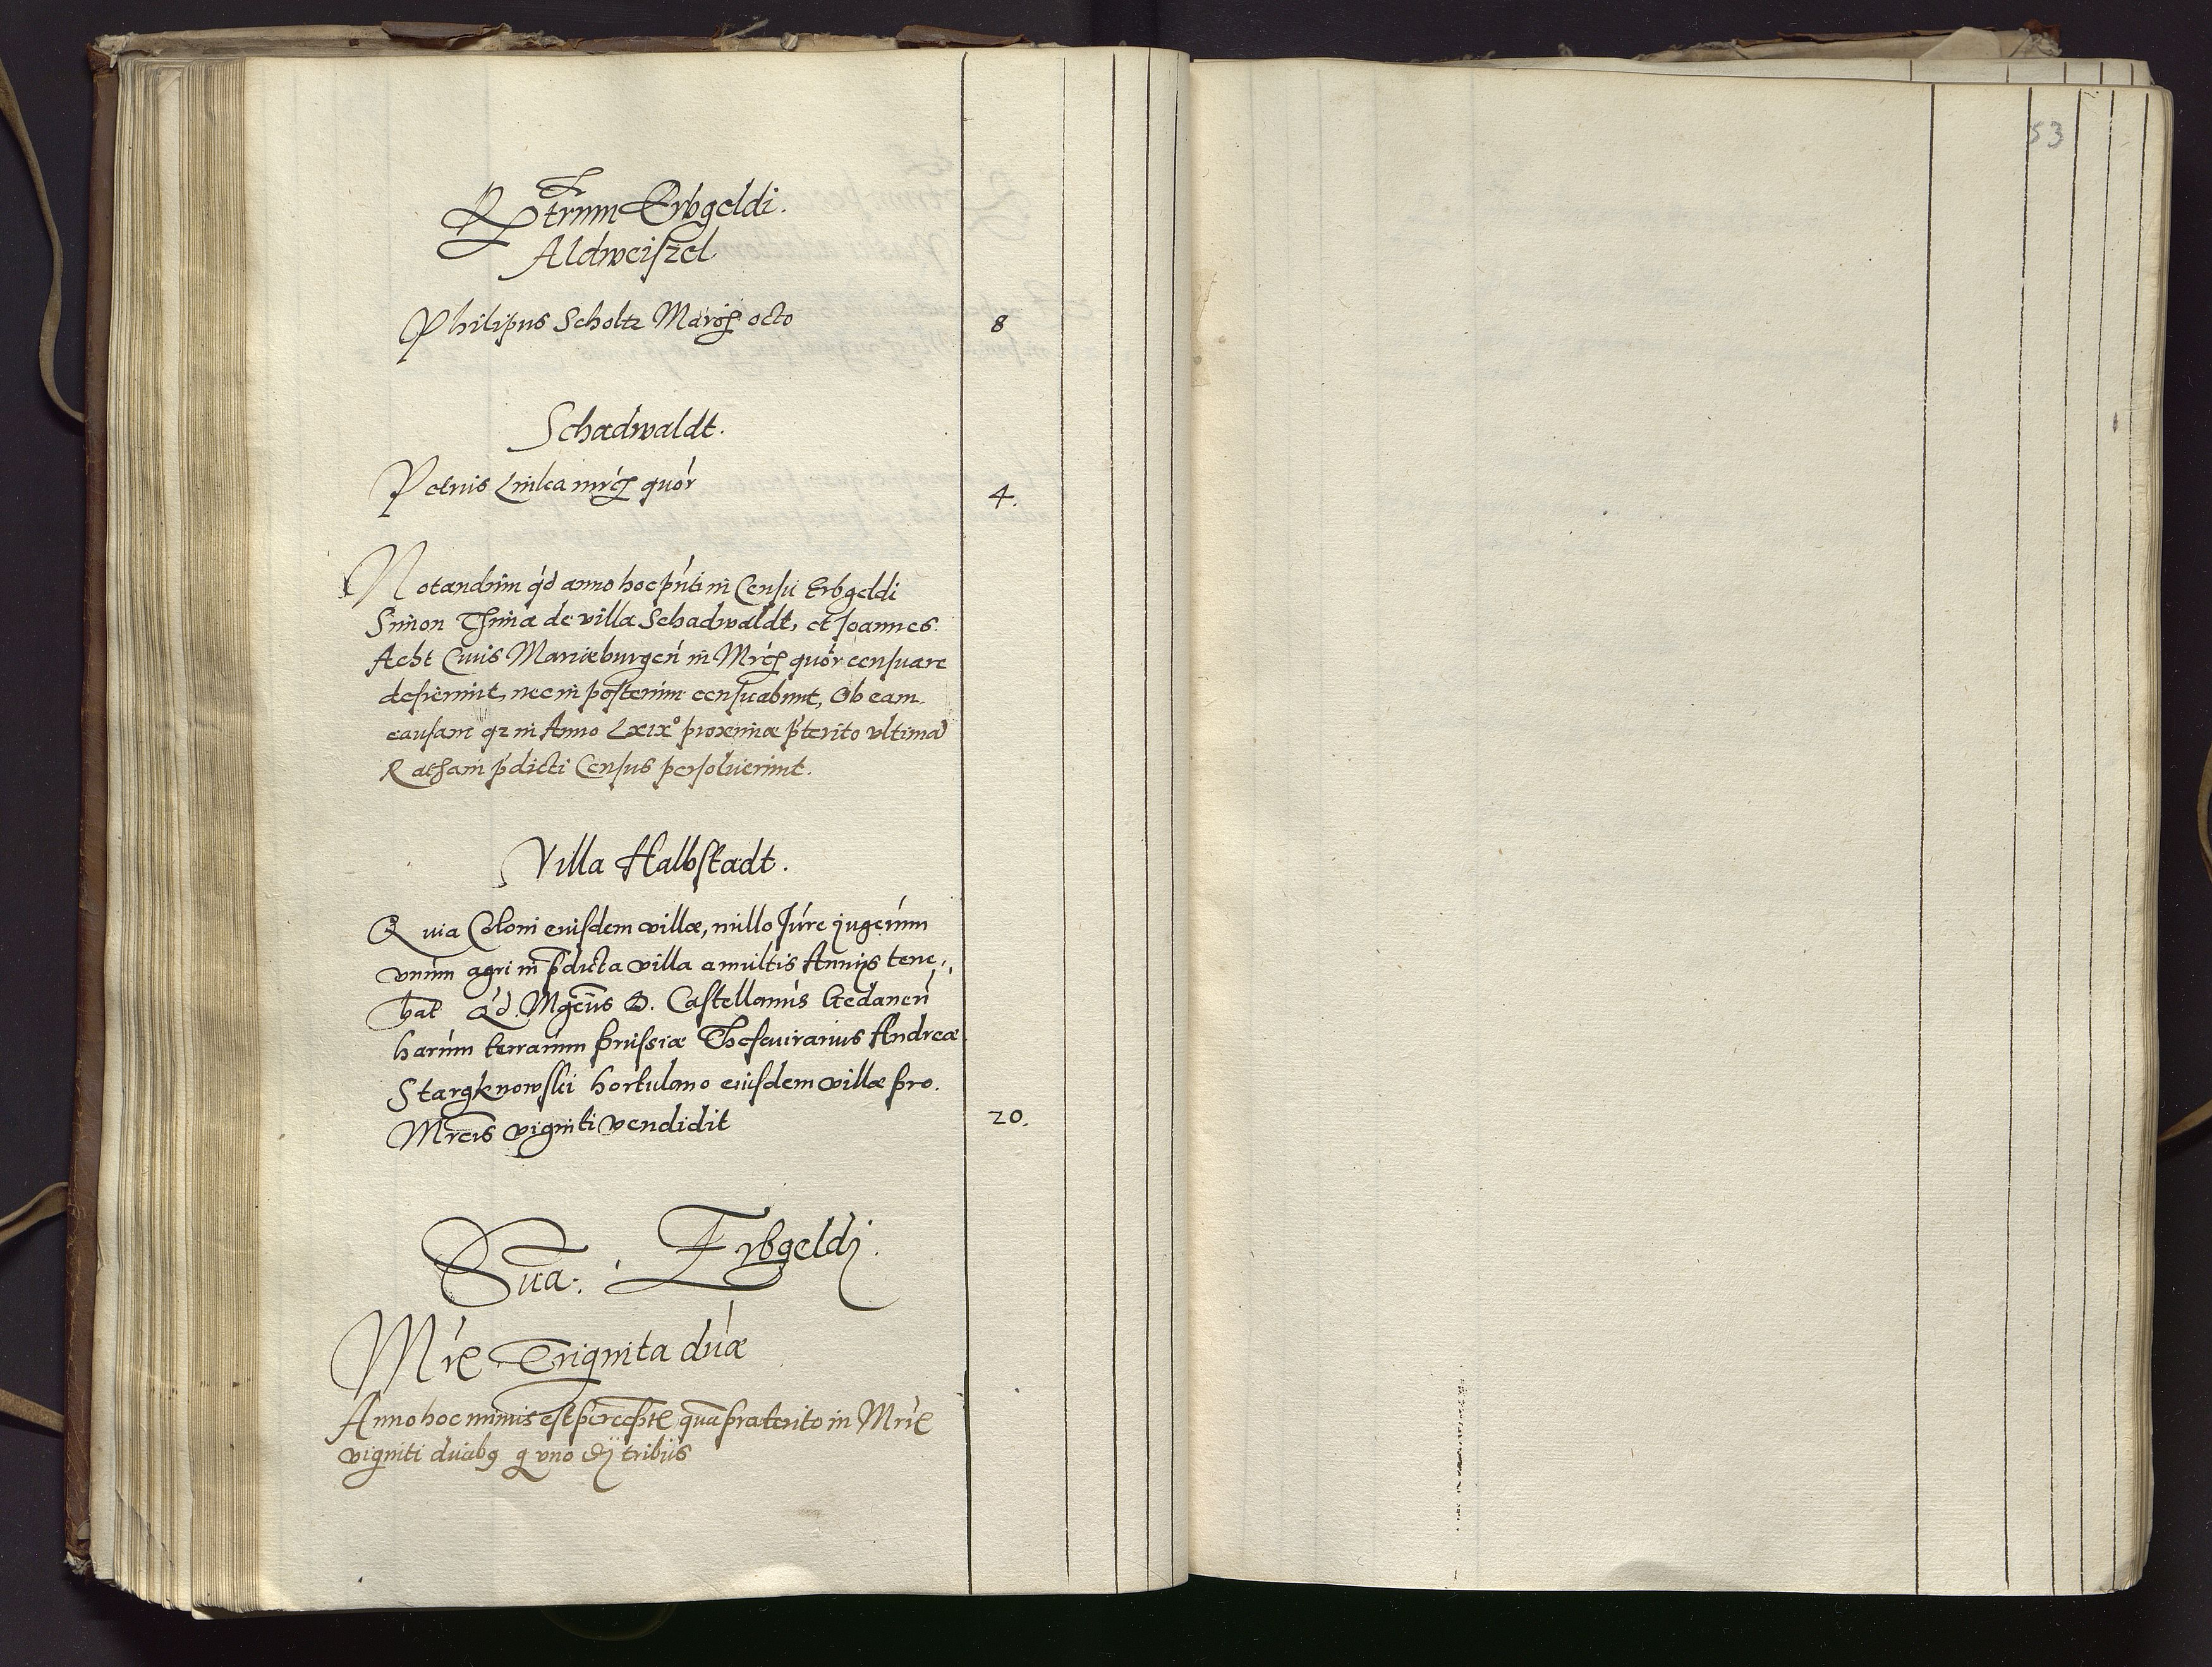 Rptrum Erbgeldi.
Aldweiszel
Philipus Scholtz Marcas octo 8
Schadwaldt.
Petrus Linka mrcs quór 4.
Notandum qd anno hoc pnti in Censu Erbgeldi
Simon Thima de villa Schadwaldt, et Joannes
Acht Civis Marieburgen in Mrcs quór censuare
desierunt, nec in posterum censuabunt, Ob eam
causam qz in Anno Lxix° proxime pterito vltimā
Ratham pdicti Census persoluerunt.
Villa Halbstadt.
Quia Coloni eiusdem villæ, nullo Jure jugerum
vnum agri in pdicta villa a multis Annis tene,
bāt Qd. Mgcus D. Castellanus Gedanen
harum terrarum Prussiæ Thesaurarius Andreæ
Stargknowski hortulano eiusdem villæ pro
Mrcis viginti vendidit 20.
Sūa. Erbgeldj.
Mrc Triginta duæ
Anno hoc minus est perceptū quā præterito in Mrc
viginti duabq g vno dj tribus
53